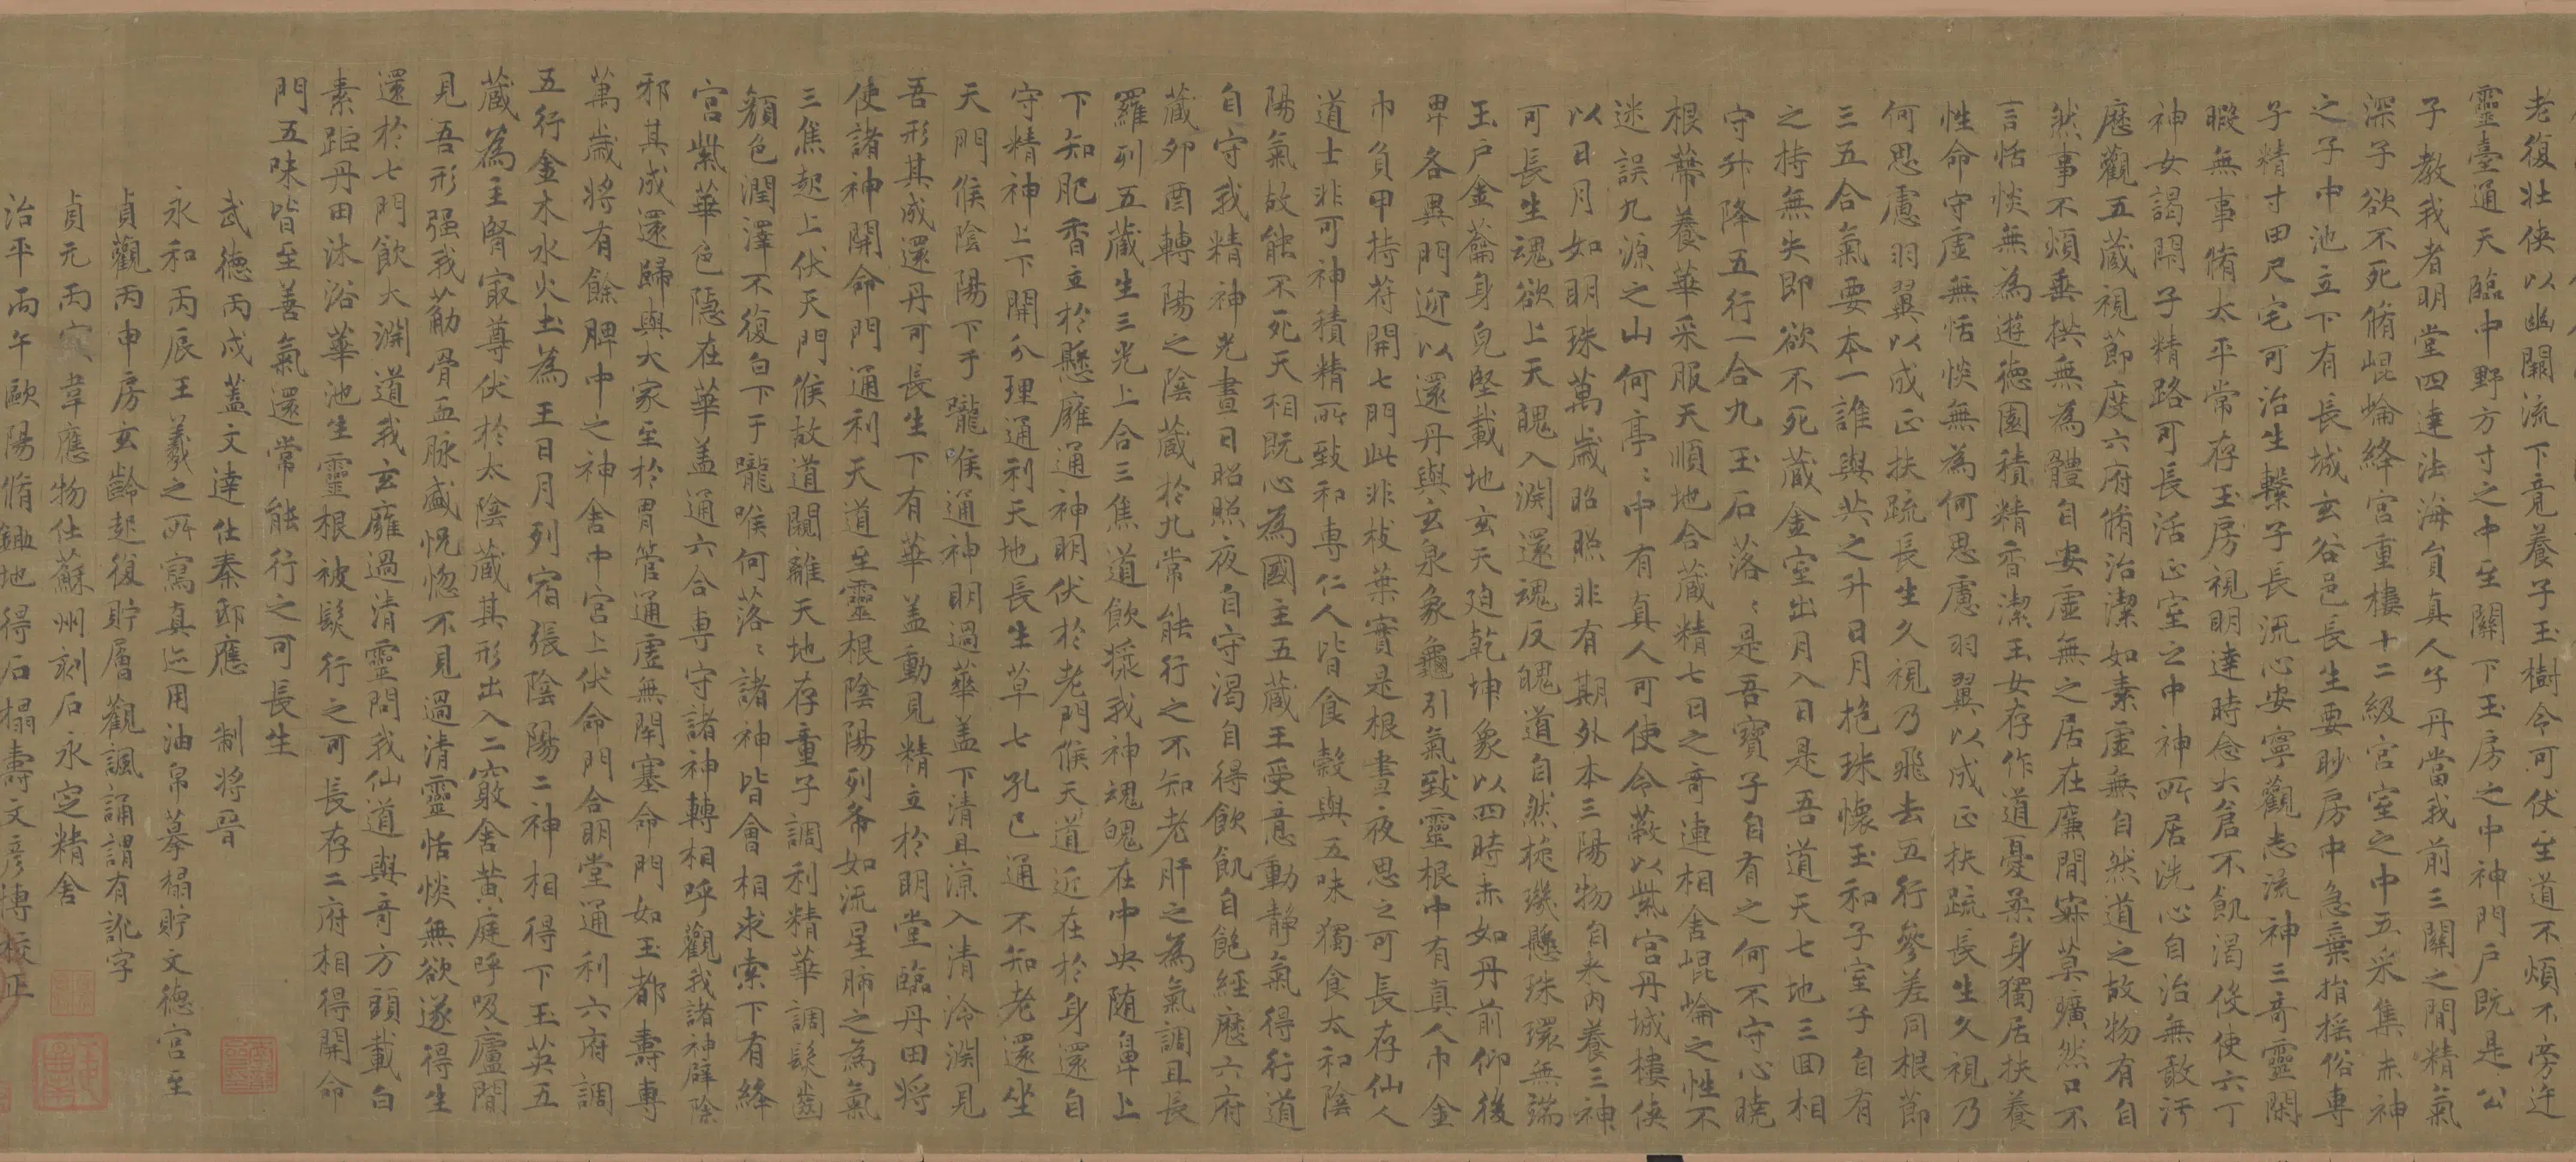 老復壯俠以幽闕流下竟養子玉樹令可伏至道不煩不旁迕
靈臺通天臨中野方寸之中至關下玉房之中神門戶既是公
子教我者明堂四達法海員真人子丹當我前三關之間精氣
深子欲不死脩崐崘絳宮重樓十二級宮室之中五采集赤神
之子中池立下有長城玄谷邑長生要眇房中急棄捐搖俗專
子精寸田尺宅可治生繫子長流心安寧觀志流神三奇靈閑
暇無事脩太平常存玉房視明達時念大倉不飢渴役使六丁
神女謁閉子精路可長活正室之中神所居洗心自治無敢汙
歷觀五藏視節度六府脩治潔如素虛無自然道之故物有自
然事不煩垂拱無為體自安虛無之居在廉間寂莫曠然口不
言恬惔無為遊德園積精香潔玉女存作道憂柔身獨居扶養
性命守虛無恬惔無為何思慮羽翼以成正扶疏長生久視乃
何思慮羽翼以成正扶疏長生久視乃飛去五行參差同根節
三五合氣要本一誰與共之升日月抱珠懷玉和子室子自有
之持無失即欲不死藏金室出月入日是吾道天七地三回相
守升降五行一合九玉石落〻是吾寶子自有之何不守心曉
根蔕養華采服天順地合藏精七日之奇連相舍崐崘之性不
迷誤九源之山何亭〻中有真人可使令蔽以紫宮丹城樓俠
以日月如明珠萬歲昭照非有期外本三陽物自来內養三神
可長生魂欲上天魄入淵還魂反魄道自然璇璣懸珠環無端
玉戶金籥身皃堅載地玄天迫乾坤象以四時赤如丹前仰後
卑各異門迎以還丹與玄泉象龜引氣致靈根中有真人巾金
巾負甲持苻開七門此非枝葉實是根晝夜思之可長存仙人
道士非可神積精所致和專仁人皆食穀與五味獨食太和陰
陽氣故能不死天相既心為國主五藏王受意動静氣得行道
自守我精神光晝日昭照夜自守渴自得飲飢自飽經歷六府
藏夘酉轉陽之陰藏於九常能行之不知老肝之為氣調且長
羅列五藏生三光上合三焦道飲漿我神魂魄在中央随鼻上
下知肥香立於懸膺通神明伏於老門候天道近在於身還自
守精神上下開分理通利天地長生草七孔已通不知老還坐
天門候陰陽下于嚨喉通神明過華盖下清且涼入清泠淵見
吾形其成還丹可長生下有華盖動見精立於明堂臨丹田將
使諸神開命門通利天道至靈根陰陽列布如流星肺之為氣
三焦起上伏天門候故道闚離天地存童子調利精華調髮齒
顏色潤澤不復白下于嚨喉何落〻諸神皆會相求索下有絳
宮紫華色隱在華盖通六合專守諸神轉相呼觀我諸神辟除
邪其成還歸與大家至於胃管通虛無閉塞命門如玉都壽專
萬歲將有餘脾中之神舍中宮上伏命門合明堂通利六府調
五行金木水火土為王日月列宿張陰陽二神相得下玉英五
藏為主腎寂尊伏於太陰藏其形出入二竅舍黄庭呼吸廬間
見吾形强我莇骨血脉盛怳惚不見過清靈恬惔無欲遂得生
還於七門飲大淵道我玄膺過清靈問我仙道與奇方頭載白
素距丹田沐浴華池生靈根被髮行之可長存二府相得開命
門五味皆至善氣還常能行之可長生
武德丙戍蓋文達仕秦邸應 制將晉
永和丙辰王羲之所寫真迹用油帛摹搨貯文德宮至
貞觀丙申房玄齡起復貯層觀諷誦謂有訛字
貞元丙寅韋應物仕蘇州刻石永定精舍
治平丙午歐陽脩鋤地得石搨壽文彥博校正